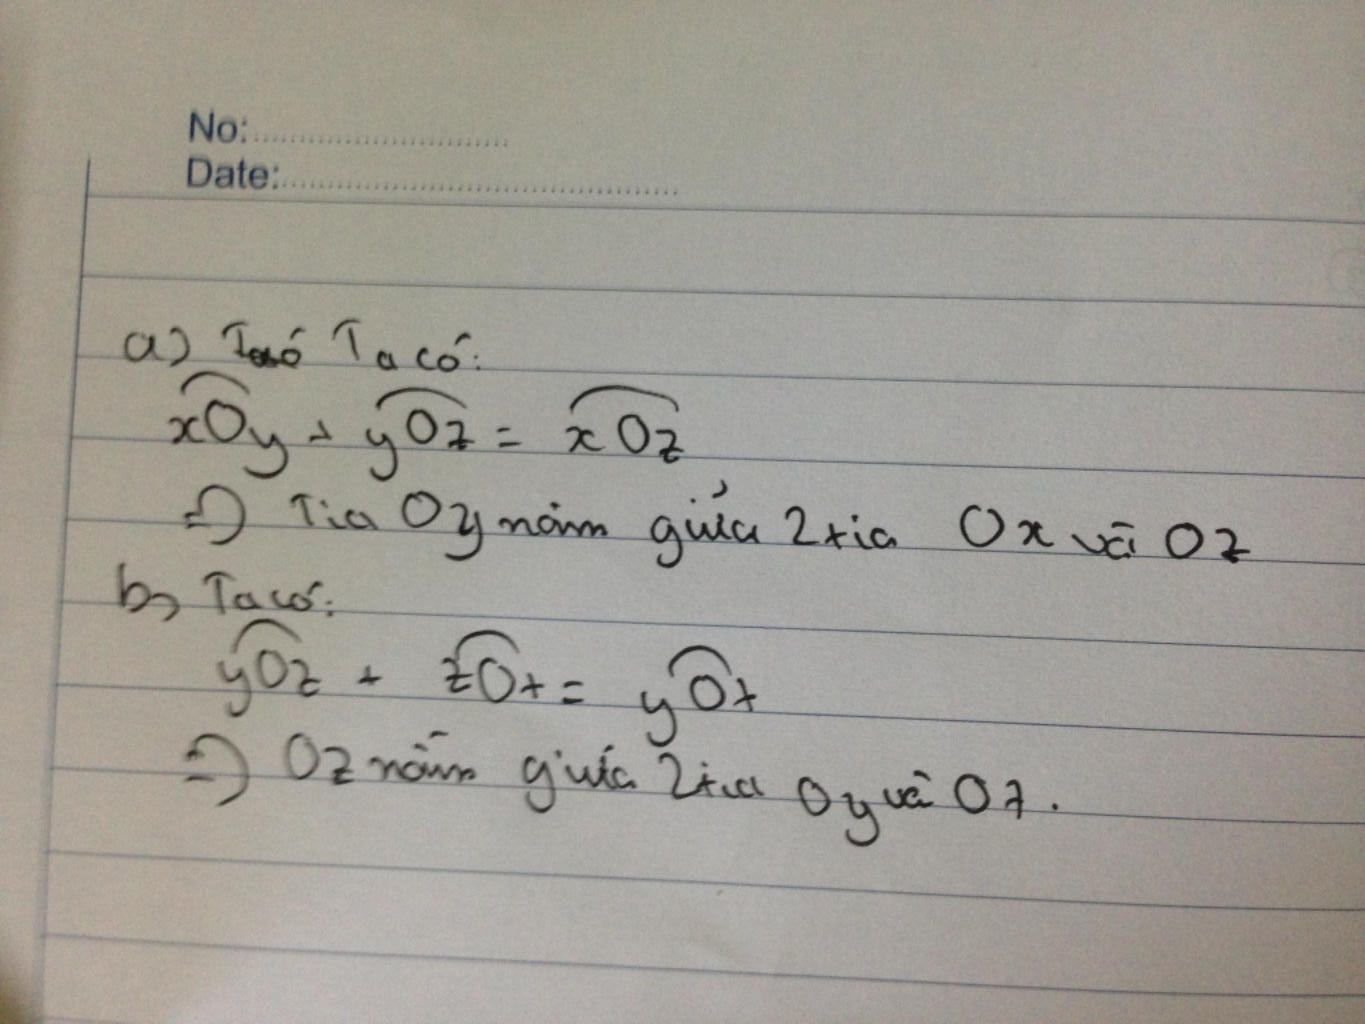 No:
Date:
a) Ta có:
xOy + yOz = xOz
=> Tia Oy nằm giữa 2 tia Ox và Oz
b) Ta có:
yOz + zOt = yOt
=> Oz nằm giữa 2 tia Oy và Ot.